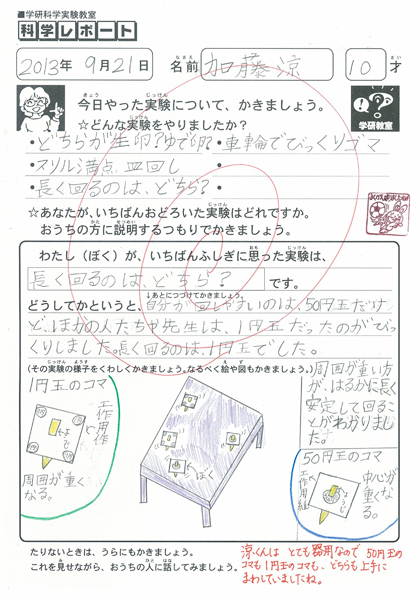 ■学研科学実験教室
科学レポート
2013年 9月21日 名前 加藤涼 10才
今日やった実験について、かきましょう。
☆どんな実験をやりましたか?
・どちらが生卵?ゆで卵? ・車輪でびっくりゴマ
・スリル満点 皿回し ・
・長く回るのは、どちら? ・
学研教室
☆あなたが、いちばんおどろいた実験はどれですか。
おうちの方に説明するつもりでかきましょう。
わたし(ぼく)が、いちばんふしぎに思った実験は、
長く回るのは、どちら? です。
↓あとにつづけてかきましょう。
どうしてかというと、自分が回しやすいのは、50円玉だけ
ど、ほかの人たちや先生は、1円玉だったのがびっ
くりしました。長く回るのは、1円玉でした。
(その実験の様子をくわしくかきましょう。なるべく絵や図もかきましょう。)
1円玉のコマ
工作用
周囲が重く
なる。
ぼく
周囲が重い方
が、はるかに長く
安定して回るこ
とがわかりまし
た。
50円玉のコマ
工作用紙
中心が
重くな
る。
たりないときは、うらにもかきましょう。
これを見せながら、おうちの人に話してみましょう。
涼くんは とても器用なので 50円玉の
コマも1円玉のコマも、どちらも上手に
まわしていましたね。